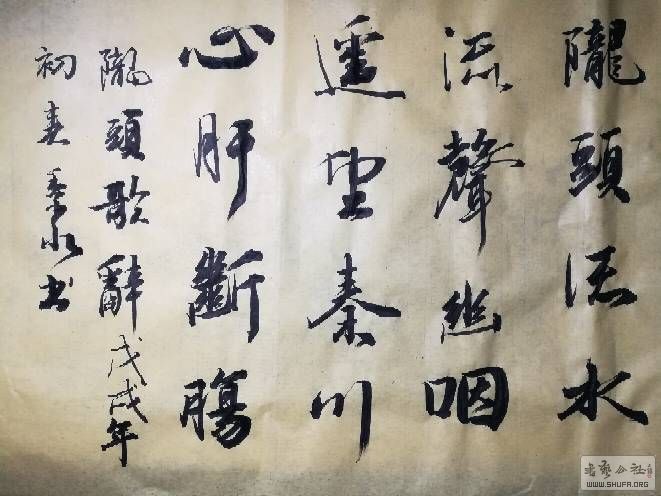 隴頭流水
流聲幽咽
遥望秦川
心肝斷腸
隴頭歌辭戊戌年
初春季水书
书艺公社
WWW.SHUFA.ORG